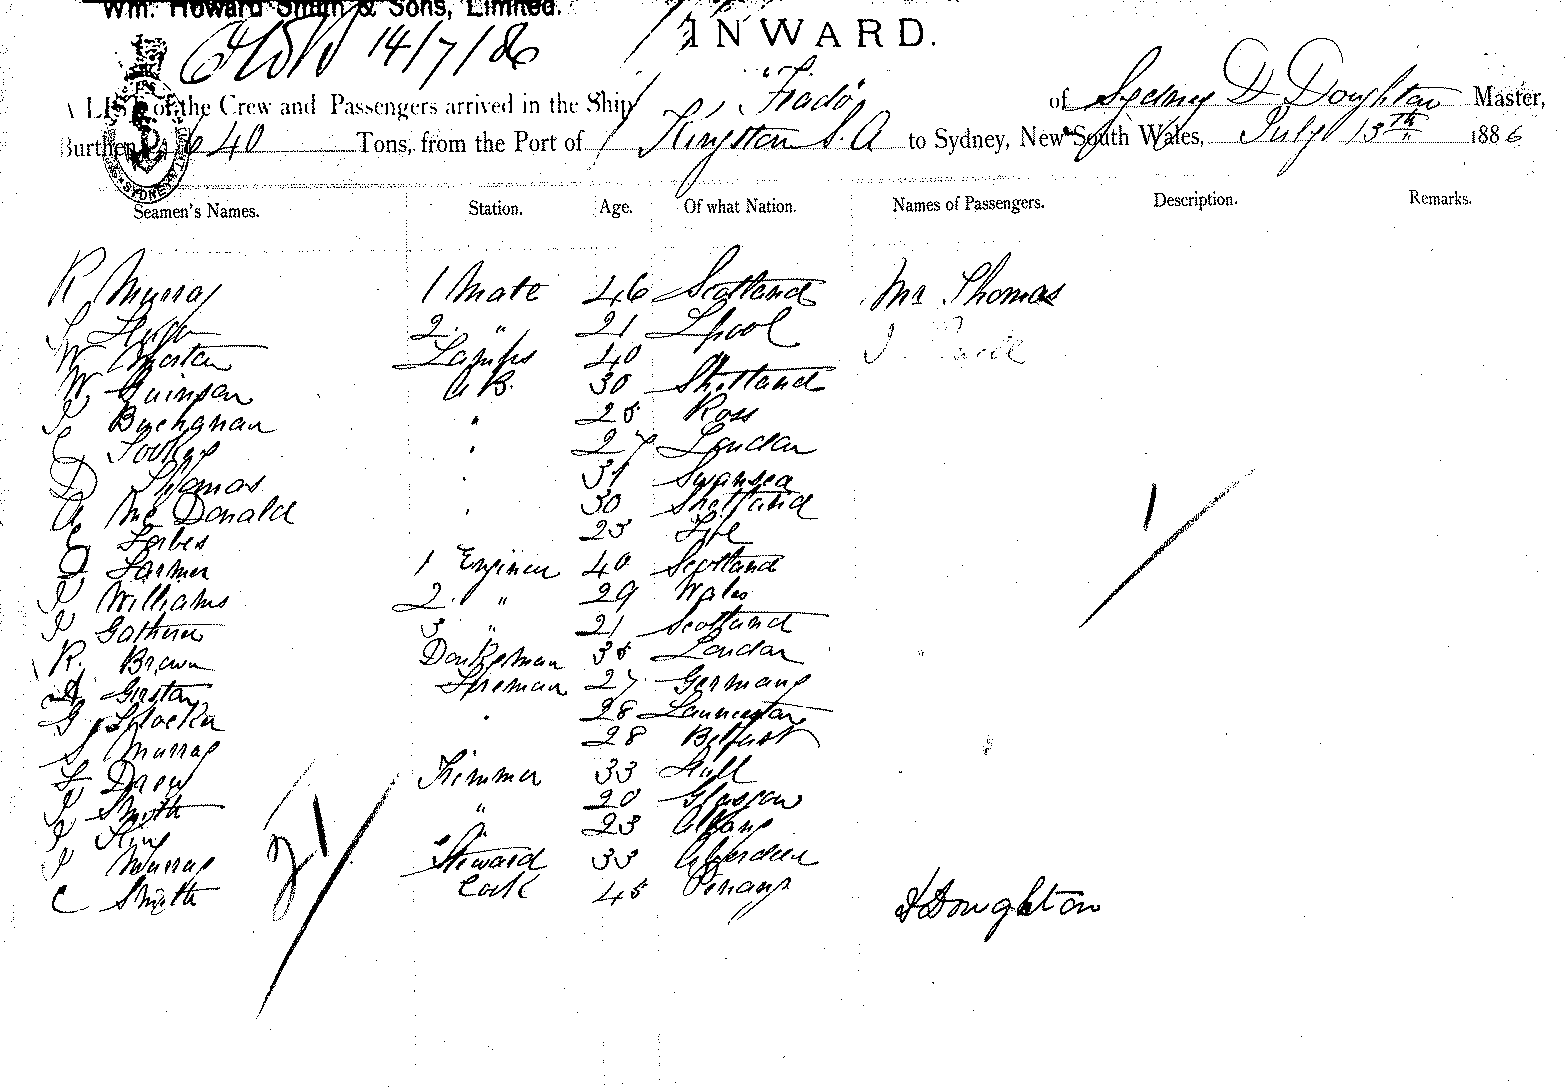 Wm. Howard Smith & Sons, Limited.
14/7/86
INWARD.
A LIST of the Crew and Passengers arrived in the Ship of Sydney D Doughton Master,
Burthen 640 Tons, from the Port of Kingston S.A to Sydney, New South Wales, July 13th 1886
Seamen's Names. Station. Age. Of what Nation. Names of Passengers. Description. Remarks.
R Murray 1 Mate 46 Scotland Mr Thomas
2 " 21 Lpool
W Morton Lamps 40
W A B. 30 Shetland
Buchanan " 25 Ross
27 London
D Thomas 31 Swansea
A McDonald 30 Shetland
Forbes 23 Fife
Farmer 1 Engineer 40 Scotland
Williams 2 " 29 Wales
3 " 21 Scotland
R. Brown Donkeyman 35 London
Fireman 27 Germany
28 Launceston
S Murray 28 Belfast
F Drew Trimmer 33 Hull
Smith " 20 Glasgow
King " 23 Albany
Murray Steward 33 Aberdeen
C Smith Cook 45 Penang
21
1
Doughton